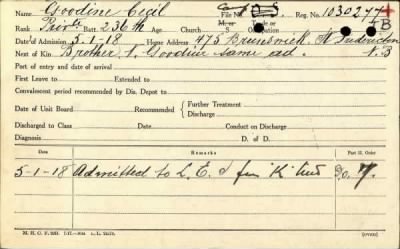 Name Goodine Cecil File No. Reg. No. 1030277
B
Rank Private Batt. 236th Age Church M. or S. Trade or Occupation
Date of Admission 5-1-18 Home Address 475 Brunswick St Fredericton
Next of Kin Brother, Goodine same ad. N.B
Port of entry and date of arrival
First Leave to Extended to
Convalescent period recommended by Dis. Depot to
Date of Unit Board Recommended Further Treatment
Discharge
Discharged to Class Date Conduct on Discharge
Diagnosis D. of D.
Date Remarks Part II. Order
5-1-18 Admitted to L. E. fm "K" Unit D.O. 7.